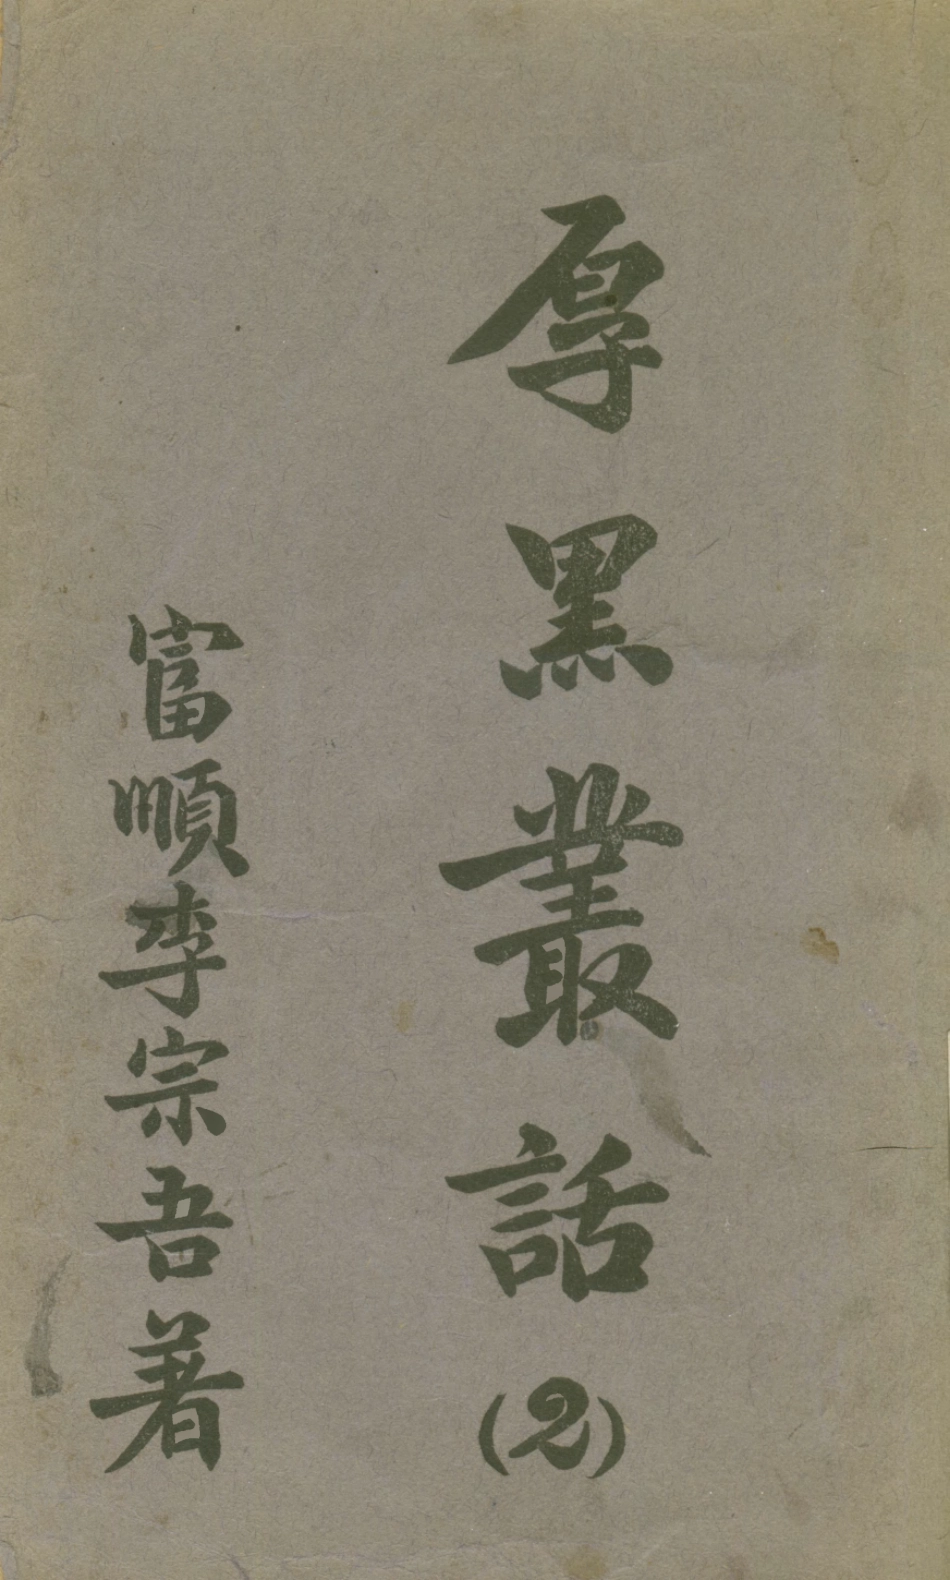 厚黑叢話(2)
富順李宗吾著